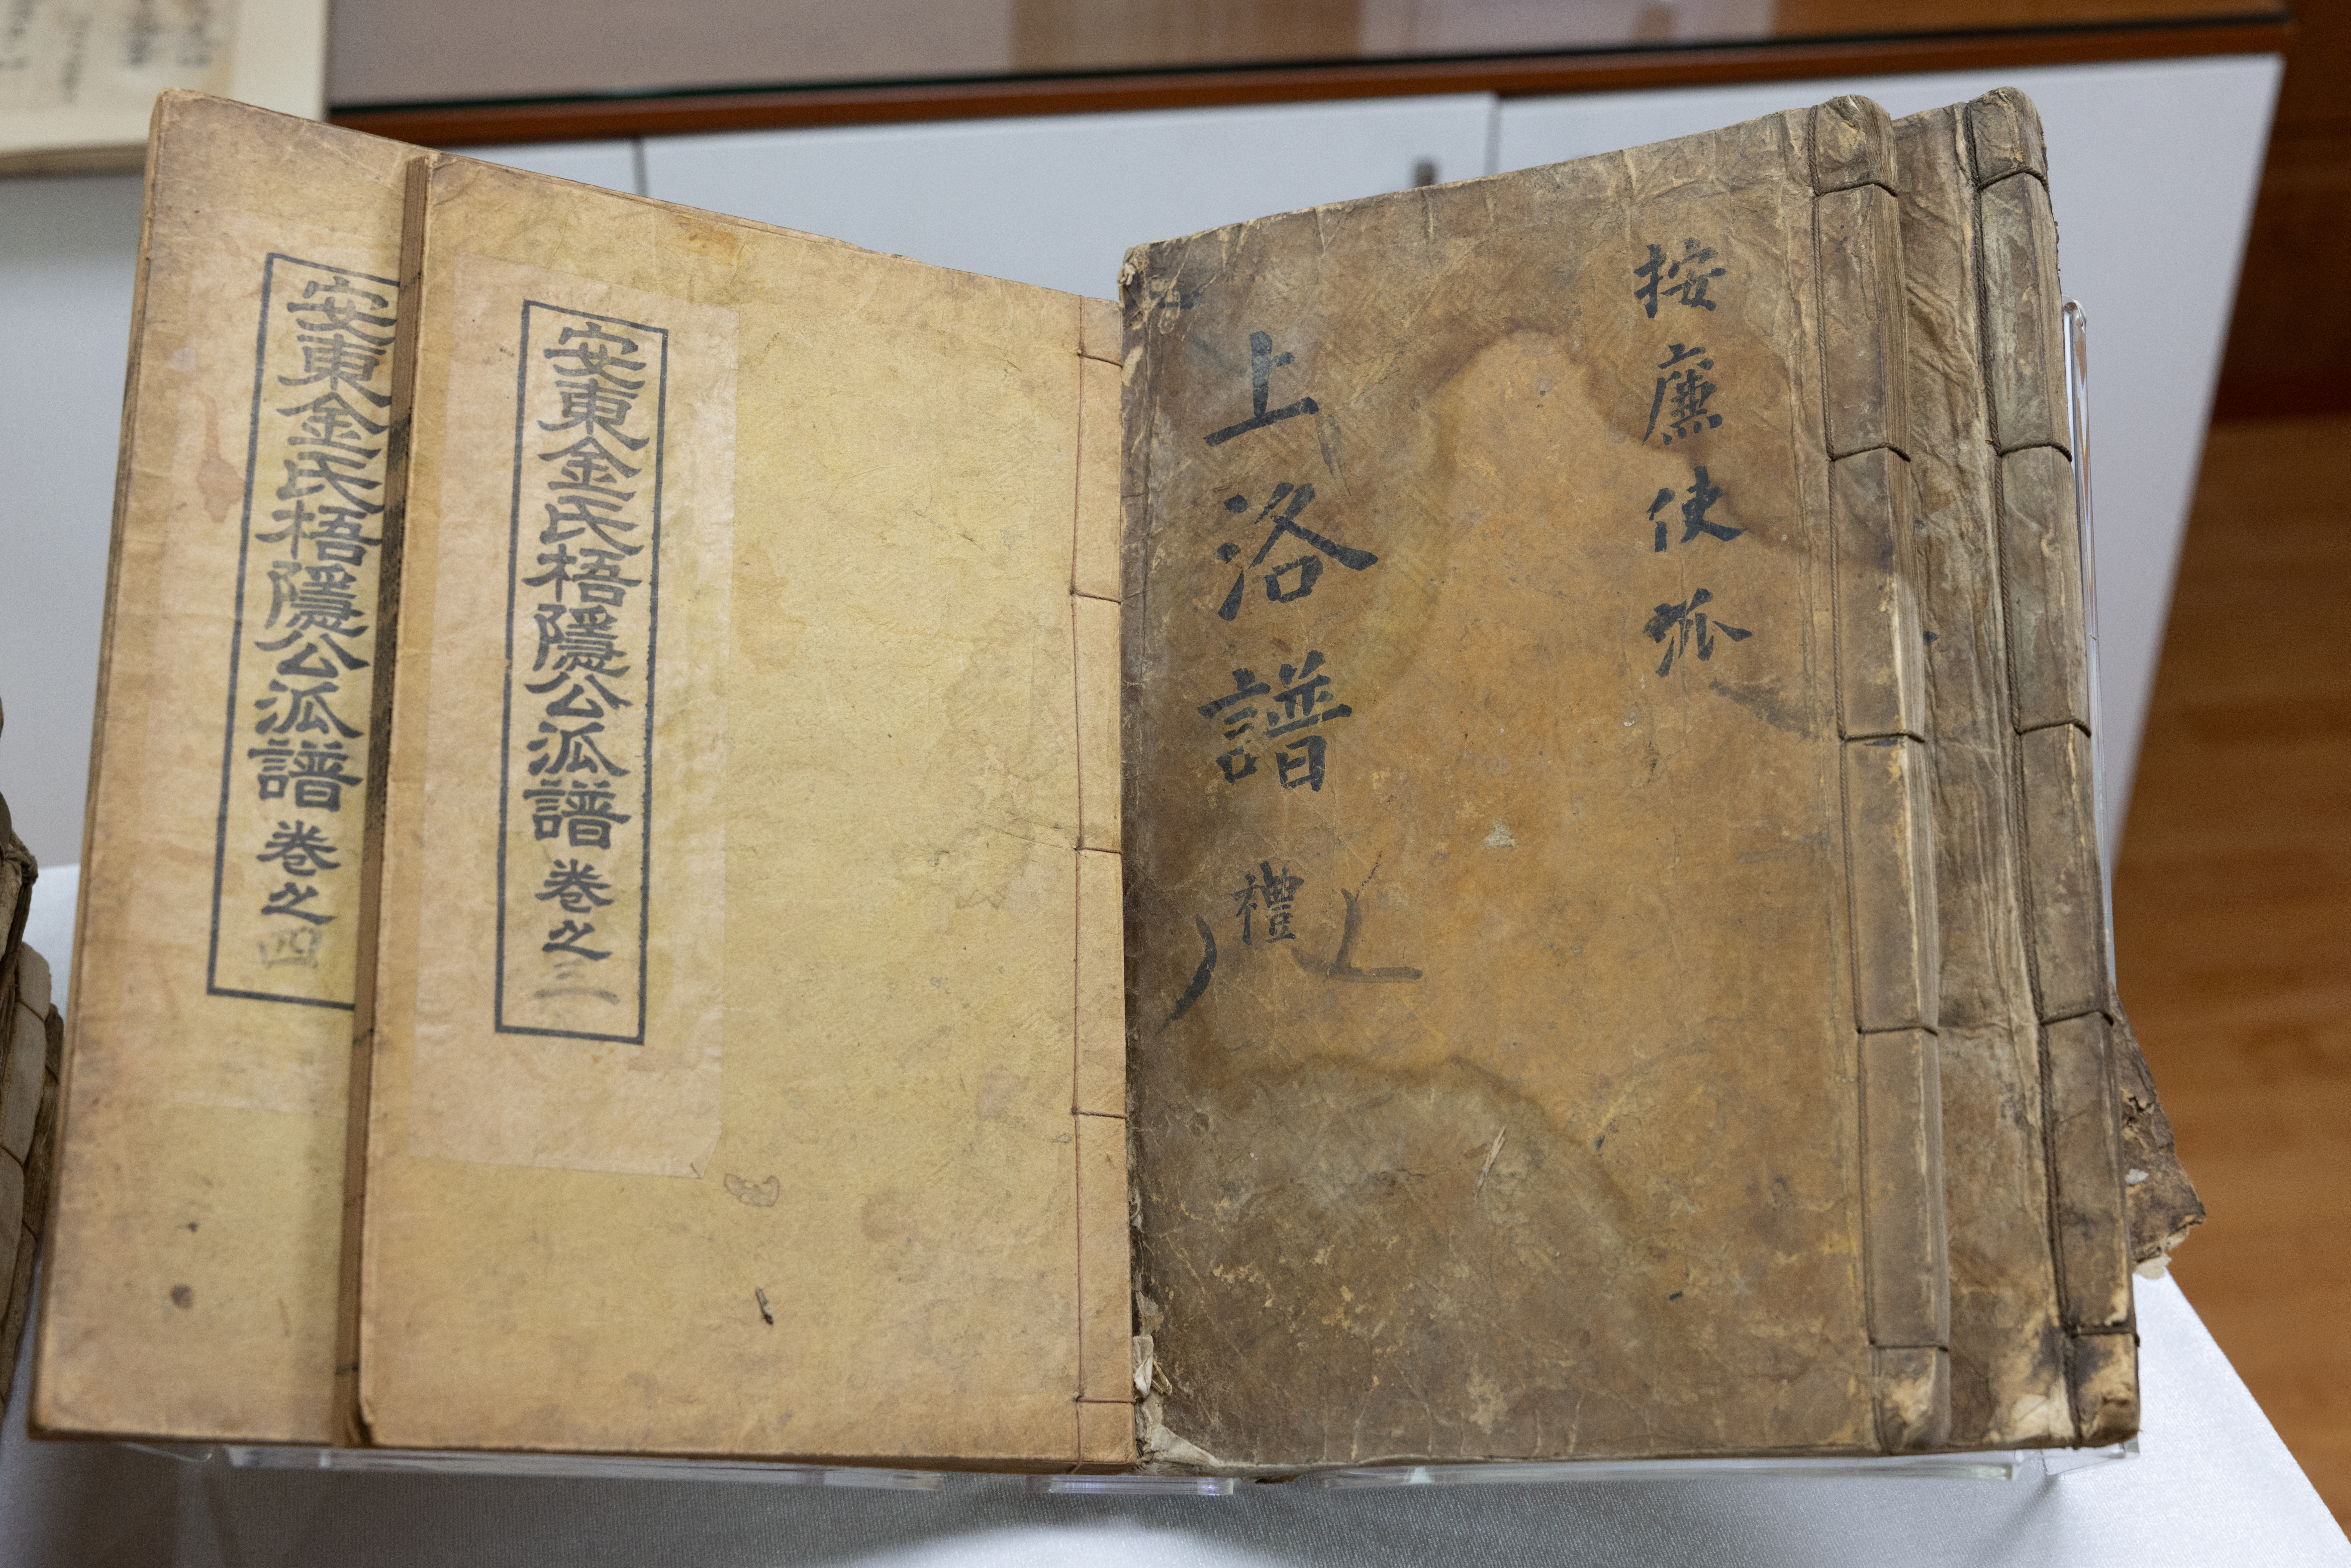 安東金氏梧隱公派譜 卷之四
安東金氏梧隱公派譜 卷之三
按廉使派
上洛譜 禮